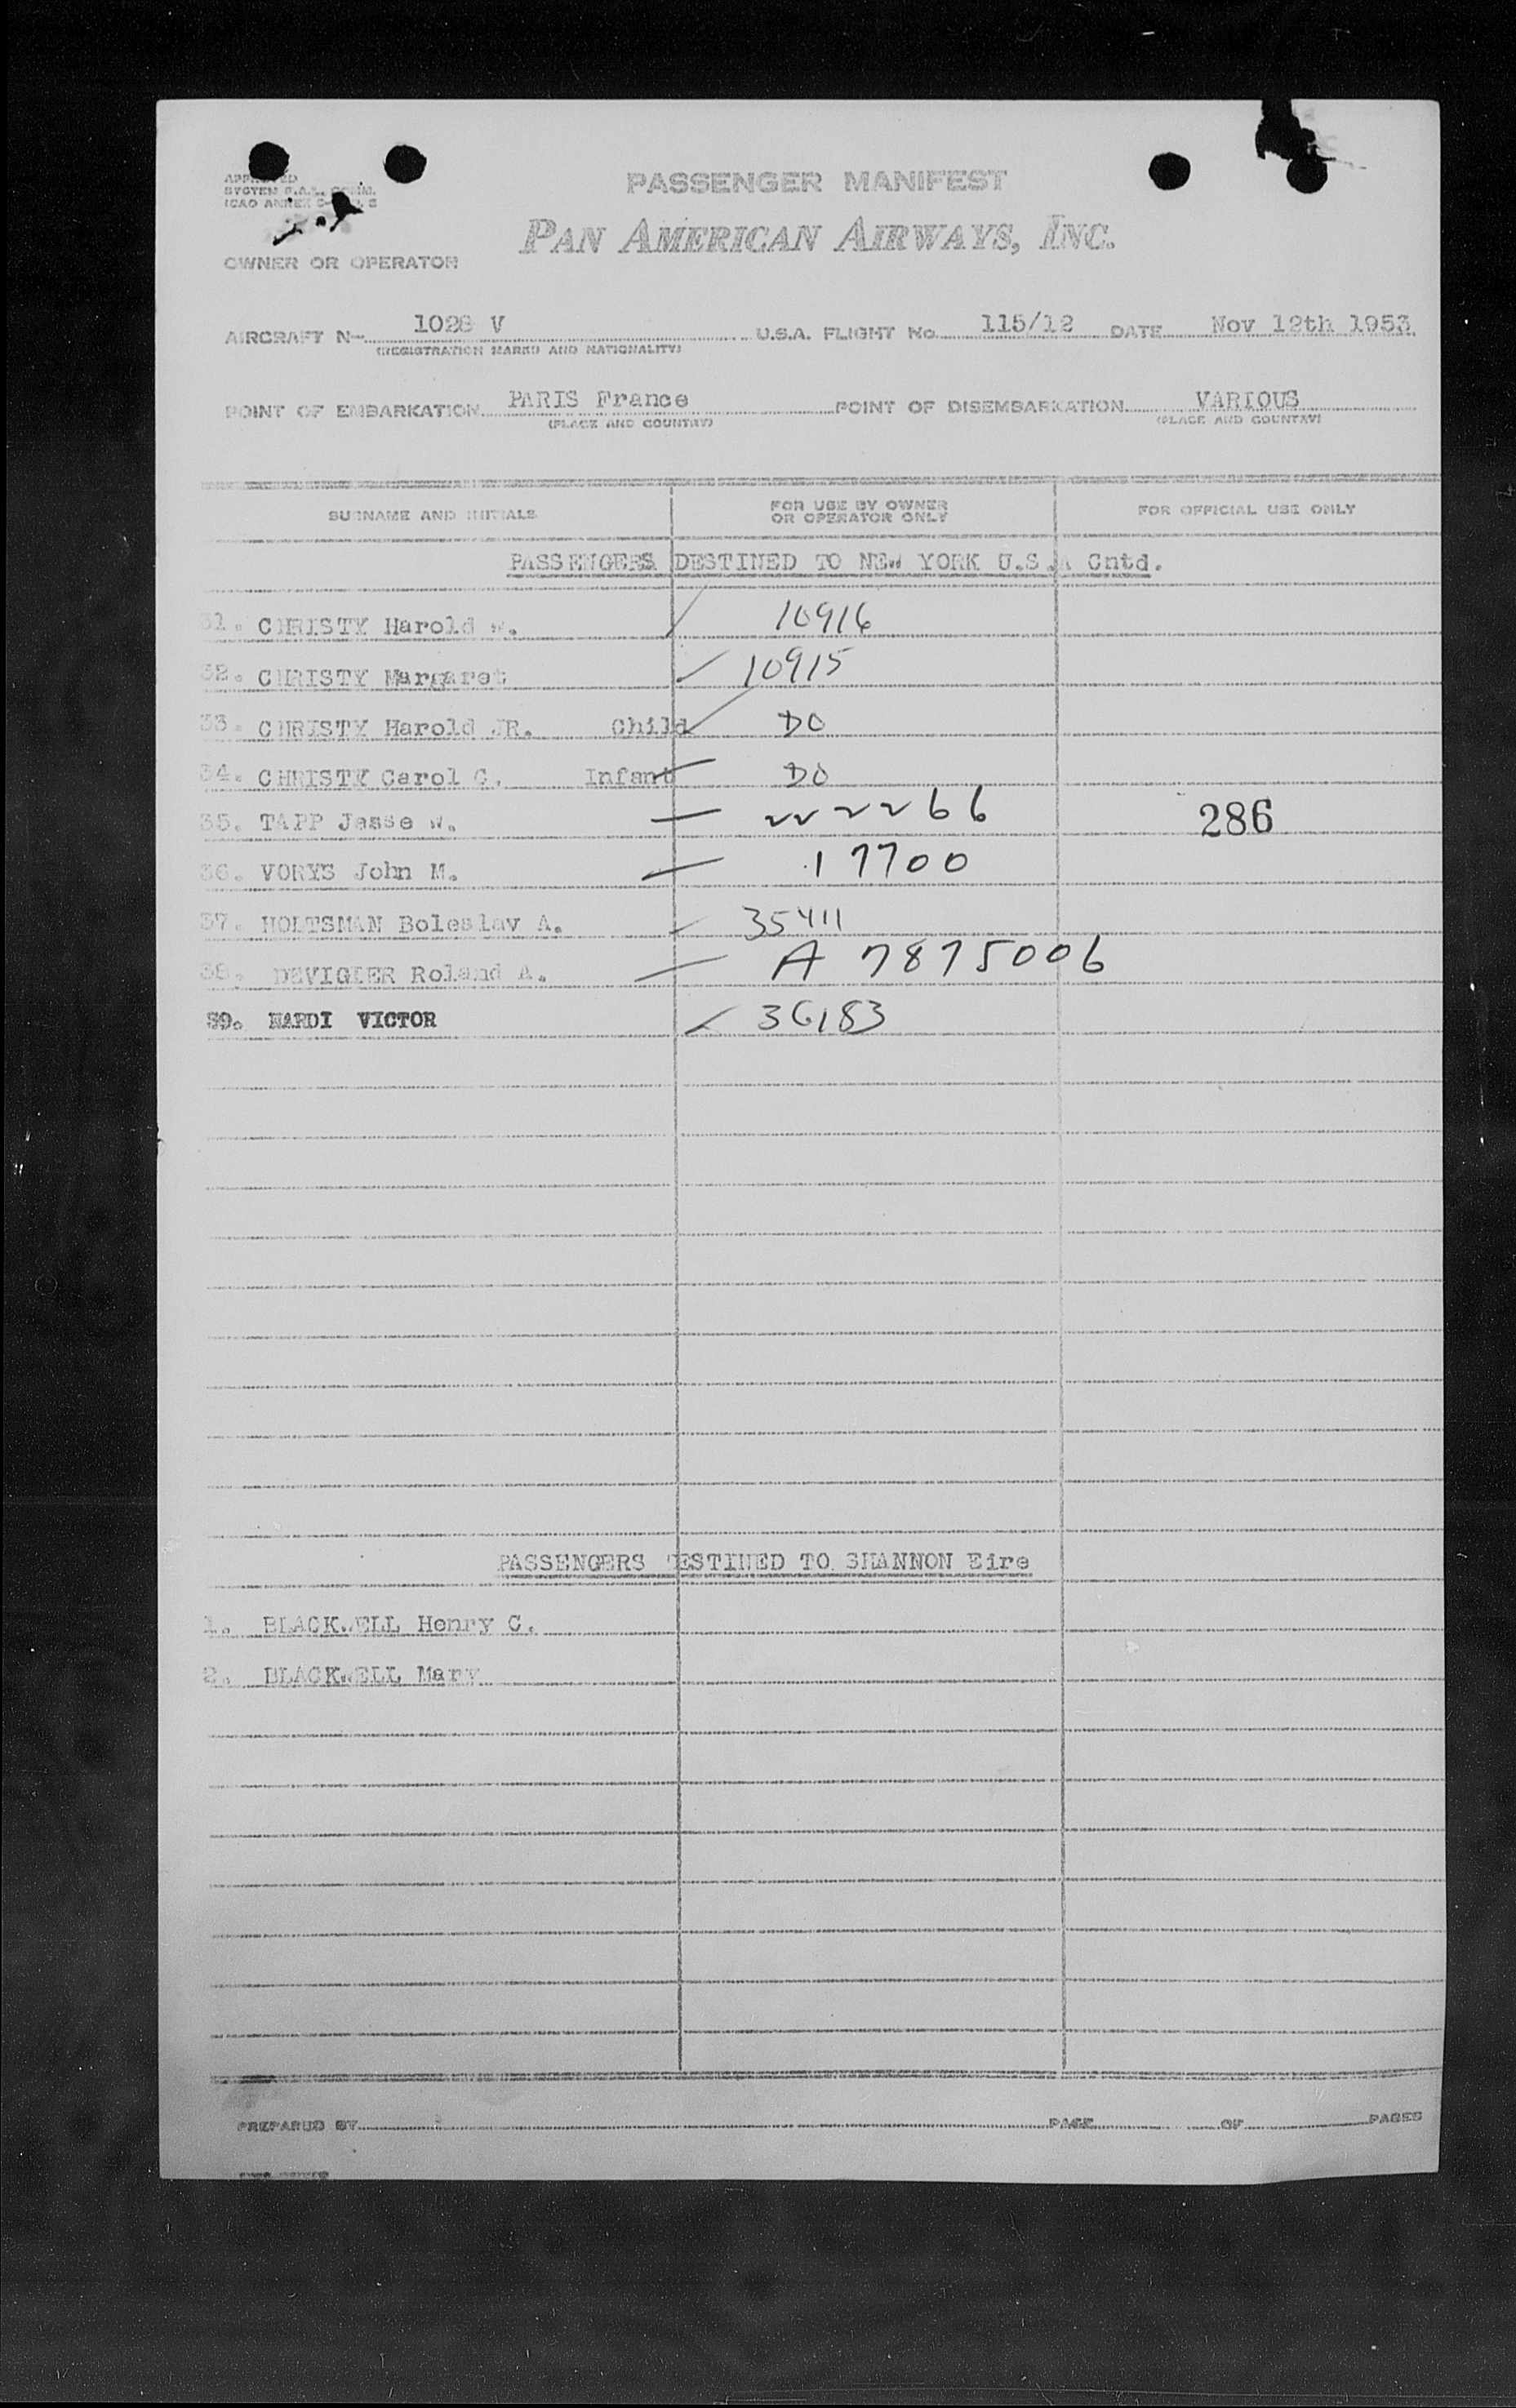 PASSENGER MANIFEST
PAN AMERICAN AIRWAYS, INC.
OWNER OR OPERATOR
AIRCRAFT N- 1028 V U.S.A. FLIGHT No. 115/12 DATE Nov 12th 1953
(REGISTRATION MARKS AND NATIONALITY)
POINT OF EMBARKATION PARIS France POINT OF DISEMBARKATION VARIOUS
(PLACE AND COUNTRY) (PLACE AND COUNTRY)
SURNAME AND INITIALS FOR USE BY OWNER OR OPERATOR ONLY FOR OFFICIAL USE ONLY
PASSENGERS DESTINED TO NEW YORK U.S.A Cntd.
31. CHRISTY Harold W. 10916
32. CHRISTY Margaret 10915
33. CHRISTY Harold JR. Child DO
34. CHRISTY Carol C. Infant DO
35. TAPP Jesse W. 222266 286
36. VORYS John M. 17700
37. HOLTSMAN Boleslav A. 35411
38. DEVIGIER Roland A. A 7875006
39. NARDI VICTOR 36183
PASSENGERS DESTINED TO SHANNON Eire
1. BLACKWELL Henry C.
2. BLACKWELL Mary
PREPARED BY PAGE OF PAGES